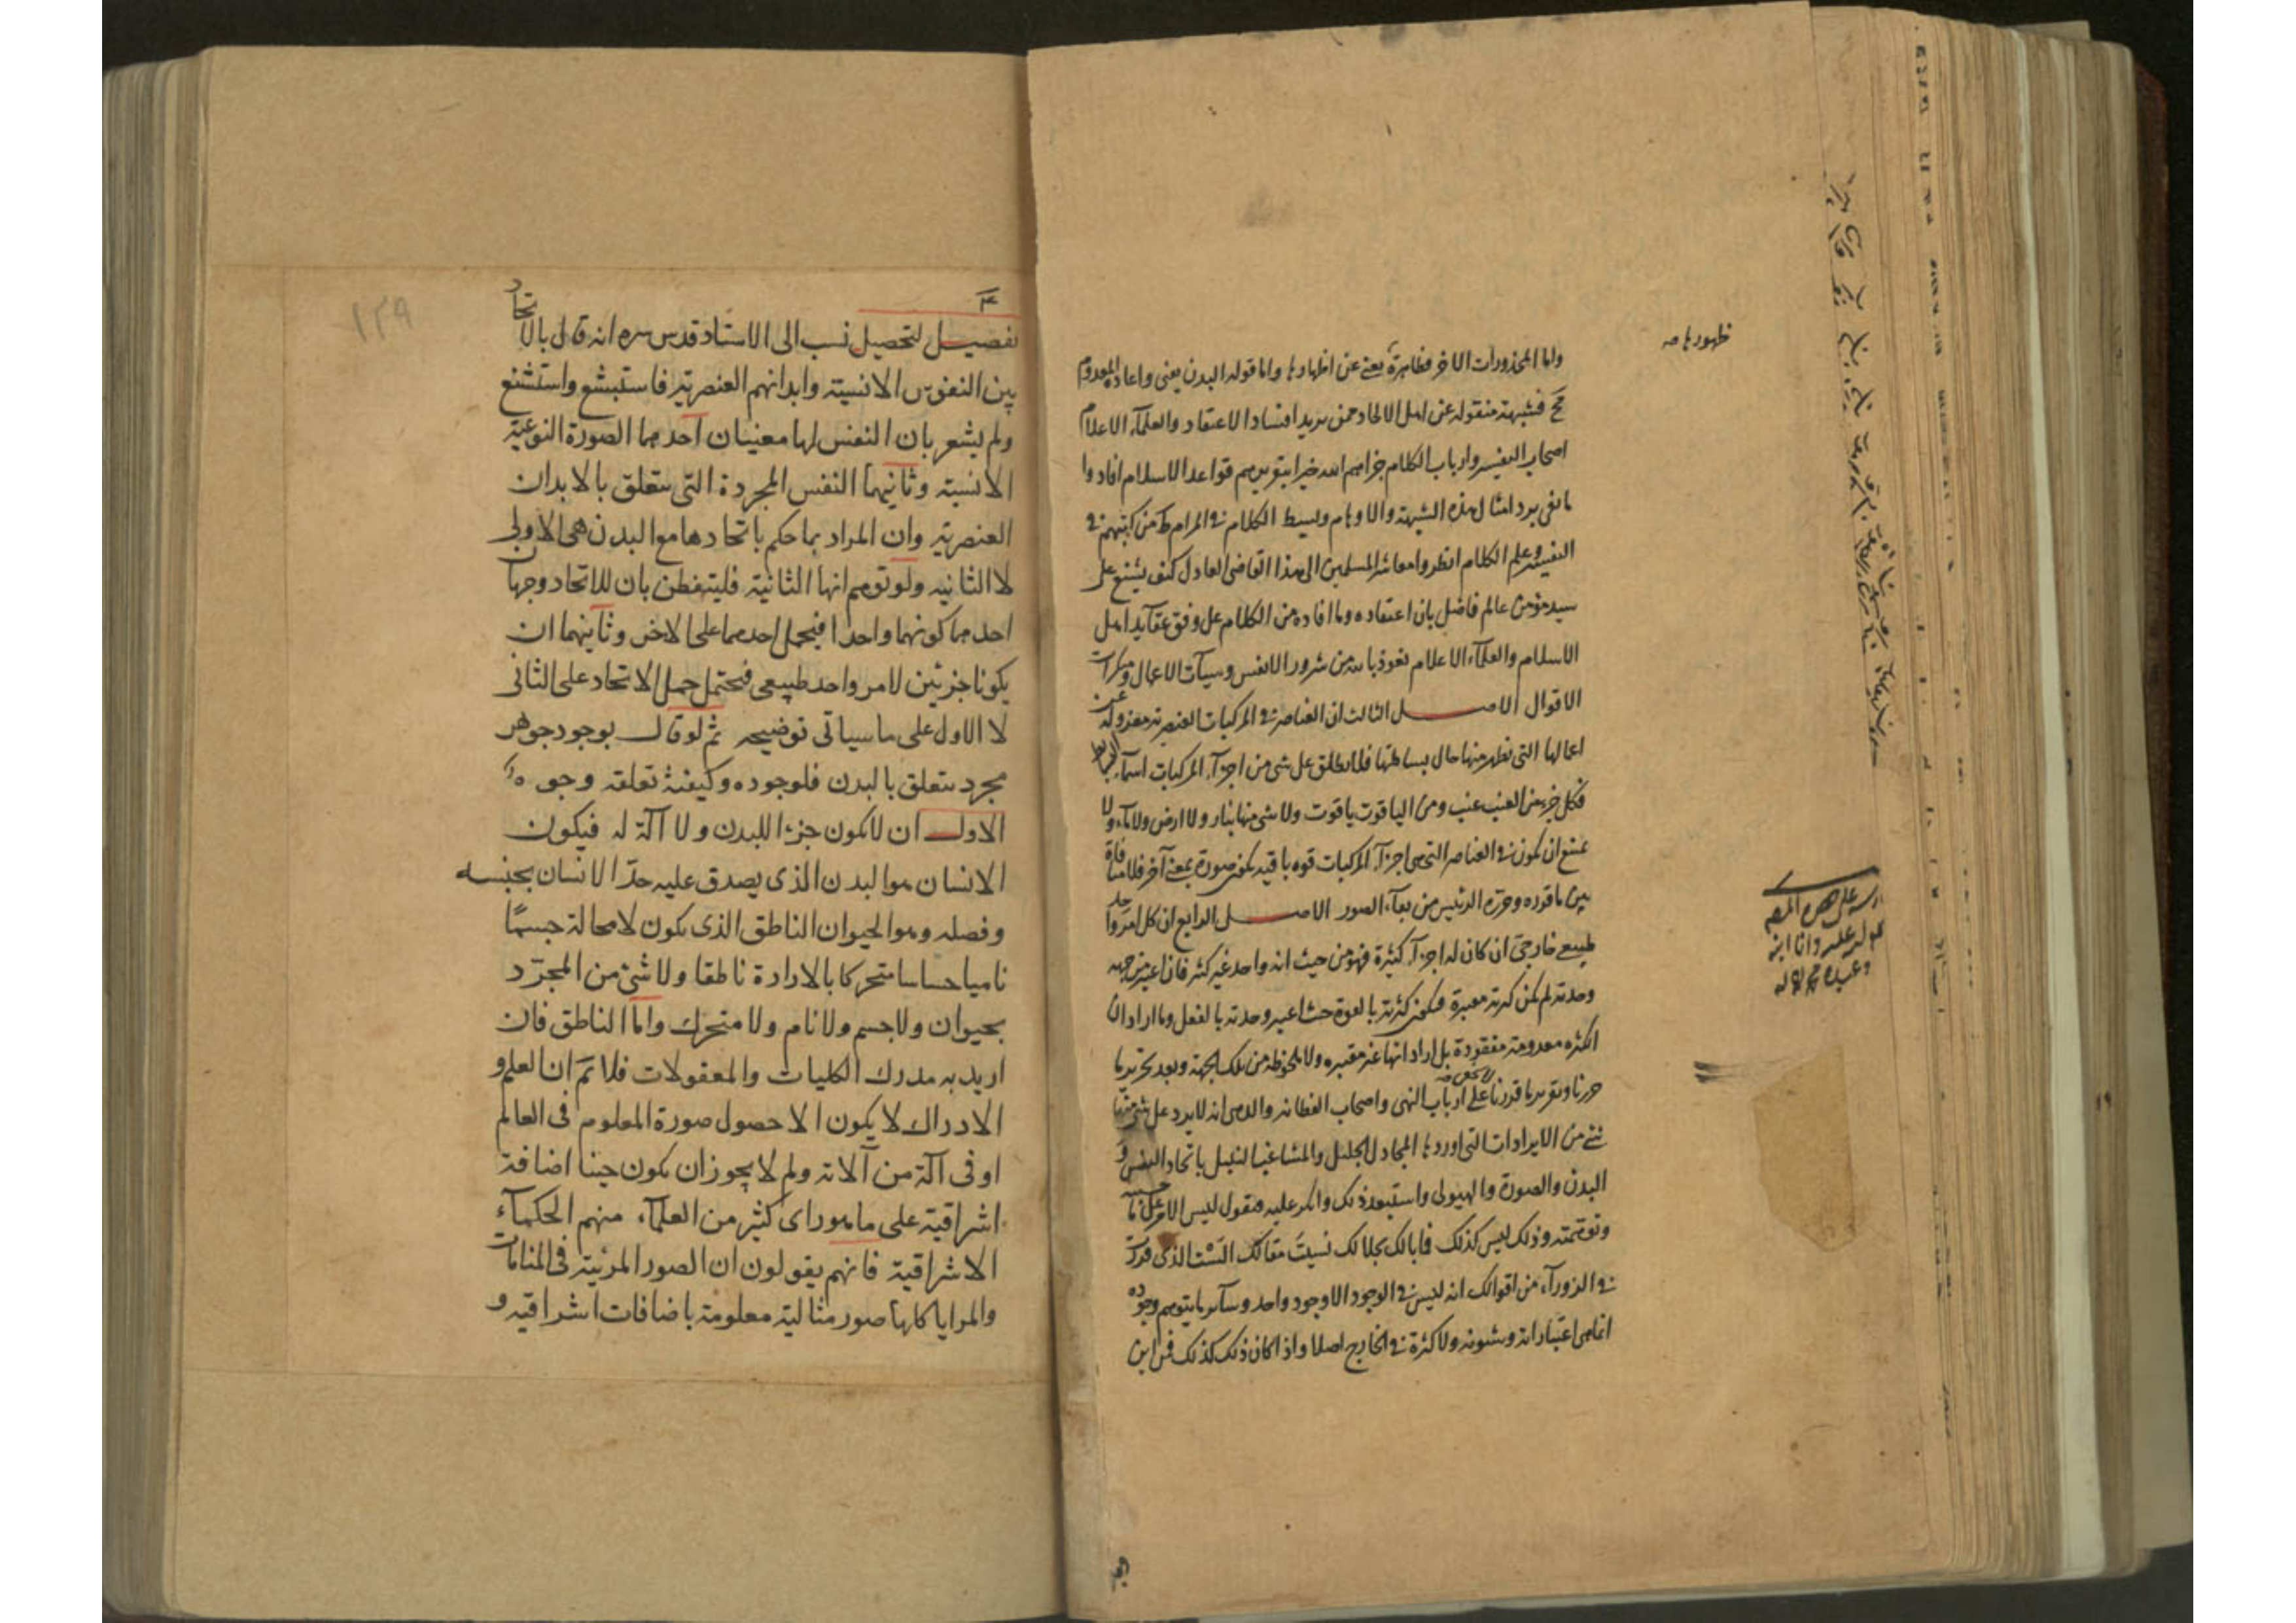 واما المحذورات الاخر فظاهرة يغنى عن اظهارها واما قوله البدن يعنى واعادة المعدوم
مح فشبهة منقولة عن اهل الالحاد ممن يريد افساد الاعتقاد والعلماء الاعلام
اصحاب التفسير وارباب الكلام جزاهم الله خيرا بتوير قواعد الاسلام افادوا
ما يفى برد امثال هذه الشبهة والاوهام وبسط الكلام فى المرام من كتبهم فى
التفسير وعلم الكلام انظروا معاشر المسلمين الى هذا القاضى العادل كيف يشنع على
سيد مؤمن عالم فاضل بان اعتقاده وما افاده من الكلام على وفق عقايد اهل
الاسلام والعلماء الاعلام نعوذ بالله من شرور الانفس وسيآت الاعمال ومنكرات
الاقوال الاصل الثالث ان العناصر فى المركبات العنصرية معزولة عن
اعمالها التى تظهر منها حال بساطتها فلا يطلق على شى من اجزآء المركبات اسمآء البسايط
فكل جزء من العنب عنب ومن الياقوت ياقوت ولا شى منها بنار ولا ارض ولا مآء ولا
يمتنع ان يكون فى العناصر التى هى اجزآء المركبات قوة باقية يكون صورة بمعنى آخر فلا منافاة
بين ما قرره وحرره الرئيس من بقآء الصور الاصل الرابع ان كل امر واحد
طبيعى خارجى ان كان له اجزآء كثيرة فهو من حيث انه واحد غير كثير فان اعتبر من جهة
وحدته لم يكن كثرته معتبرة فيكون كثرته بالقوة حيث اعتبر وحدته بالفعل وما اراد ان
الكثرة معدومة مفقودة بل اراد انها غير معتبره ولا ملحوظة من تلك الجهة وبعد تحرير ما
حررنا وتقرير ما قررنا على ارباب النهى واصحاب الفطانة والدهى انه لا يرد على شى منها
شئ من الايرادات التى اوردها المجادل الجليل والمشاغب النبيل باتحاد النفس و
البدن والصورة والهيولى واستبعد ذلك وانكر عليه فنقول ليس الامر على ما حسبته
وتوهمته وذلك ليس كذلك فما بالك بجلالك نسيت مقالك الشت الذى قررت
فى الزورآء من اقوالك انه ليس فى الوجود الا وجود واحد وسآئر ما يتوهم وجوده
انما هى اعتباراته وشئونه ولا كثرة فى الخارج اصلا واذا كان ذلك كذلك فمن اين
ظهورها صه
١٣٩
تفصيل لتحصيل نسب الى الاستاد قدس سره انه قال بالاتحاد
بين النفوس الانسية وابدانهم العنصرية فاستبشع واستشنع
ولم يشعر بان النفس لها معنيان احدهما الصورة النوعية
الانسية وثانيهما النفس المجردة التى يتعلق بالابدان
العنصرية وان المراد بما حكم باتحادها مع البدن هى الاولى
لا الثانيه ولو توهم انها الثانية فليتفطن بان للاتحاد وجهان
احدهما كونهما واحدا فيحمل احدهما على الاخر وثانيهما ان
يكونا جزئين لامر واحد طبيعى فيحتمل حمل الاتحاد على الثانى
لا الاول على ما سياتى توضيحه ثم لو قال بوجود جوهر
مجرد يتعلق بالبدن فلوجوده وكيفية تعلقه وجوه
الاول ان لا يكون جزءا للبدن ولا آلة له فيكون
الانسان هو البدن الذى يصدق عليه حد الانسان بجنسه
وفصله وهو الحيوان الناطق الذى يكون لا محالة جسمًا
ناميا حساسا متحركا بالارادة ناطقا ولا شئ من المجرّد
بحيوان ولا جسم ولا نام ولا متحرك واما الناطق فان
اريد به مدرك الكليات والمعقولات فلا تم ان العلم و
الادراك لا يكون الا حصول صورة المعلوم فى العالم
او فى آلة من آلاته ولم لا يجوز ان يكون حينا اضافة
اشراقية على ما هو راى كثير من العلمآء منهم الحكمآء
الاشراقية فانهم يقولون ان الصور المرئية فى المنامات
والمرايا كلها صور مثالية معلومة باضافات اشراقيه و